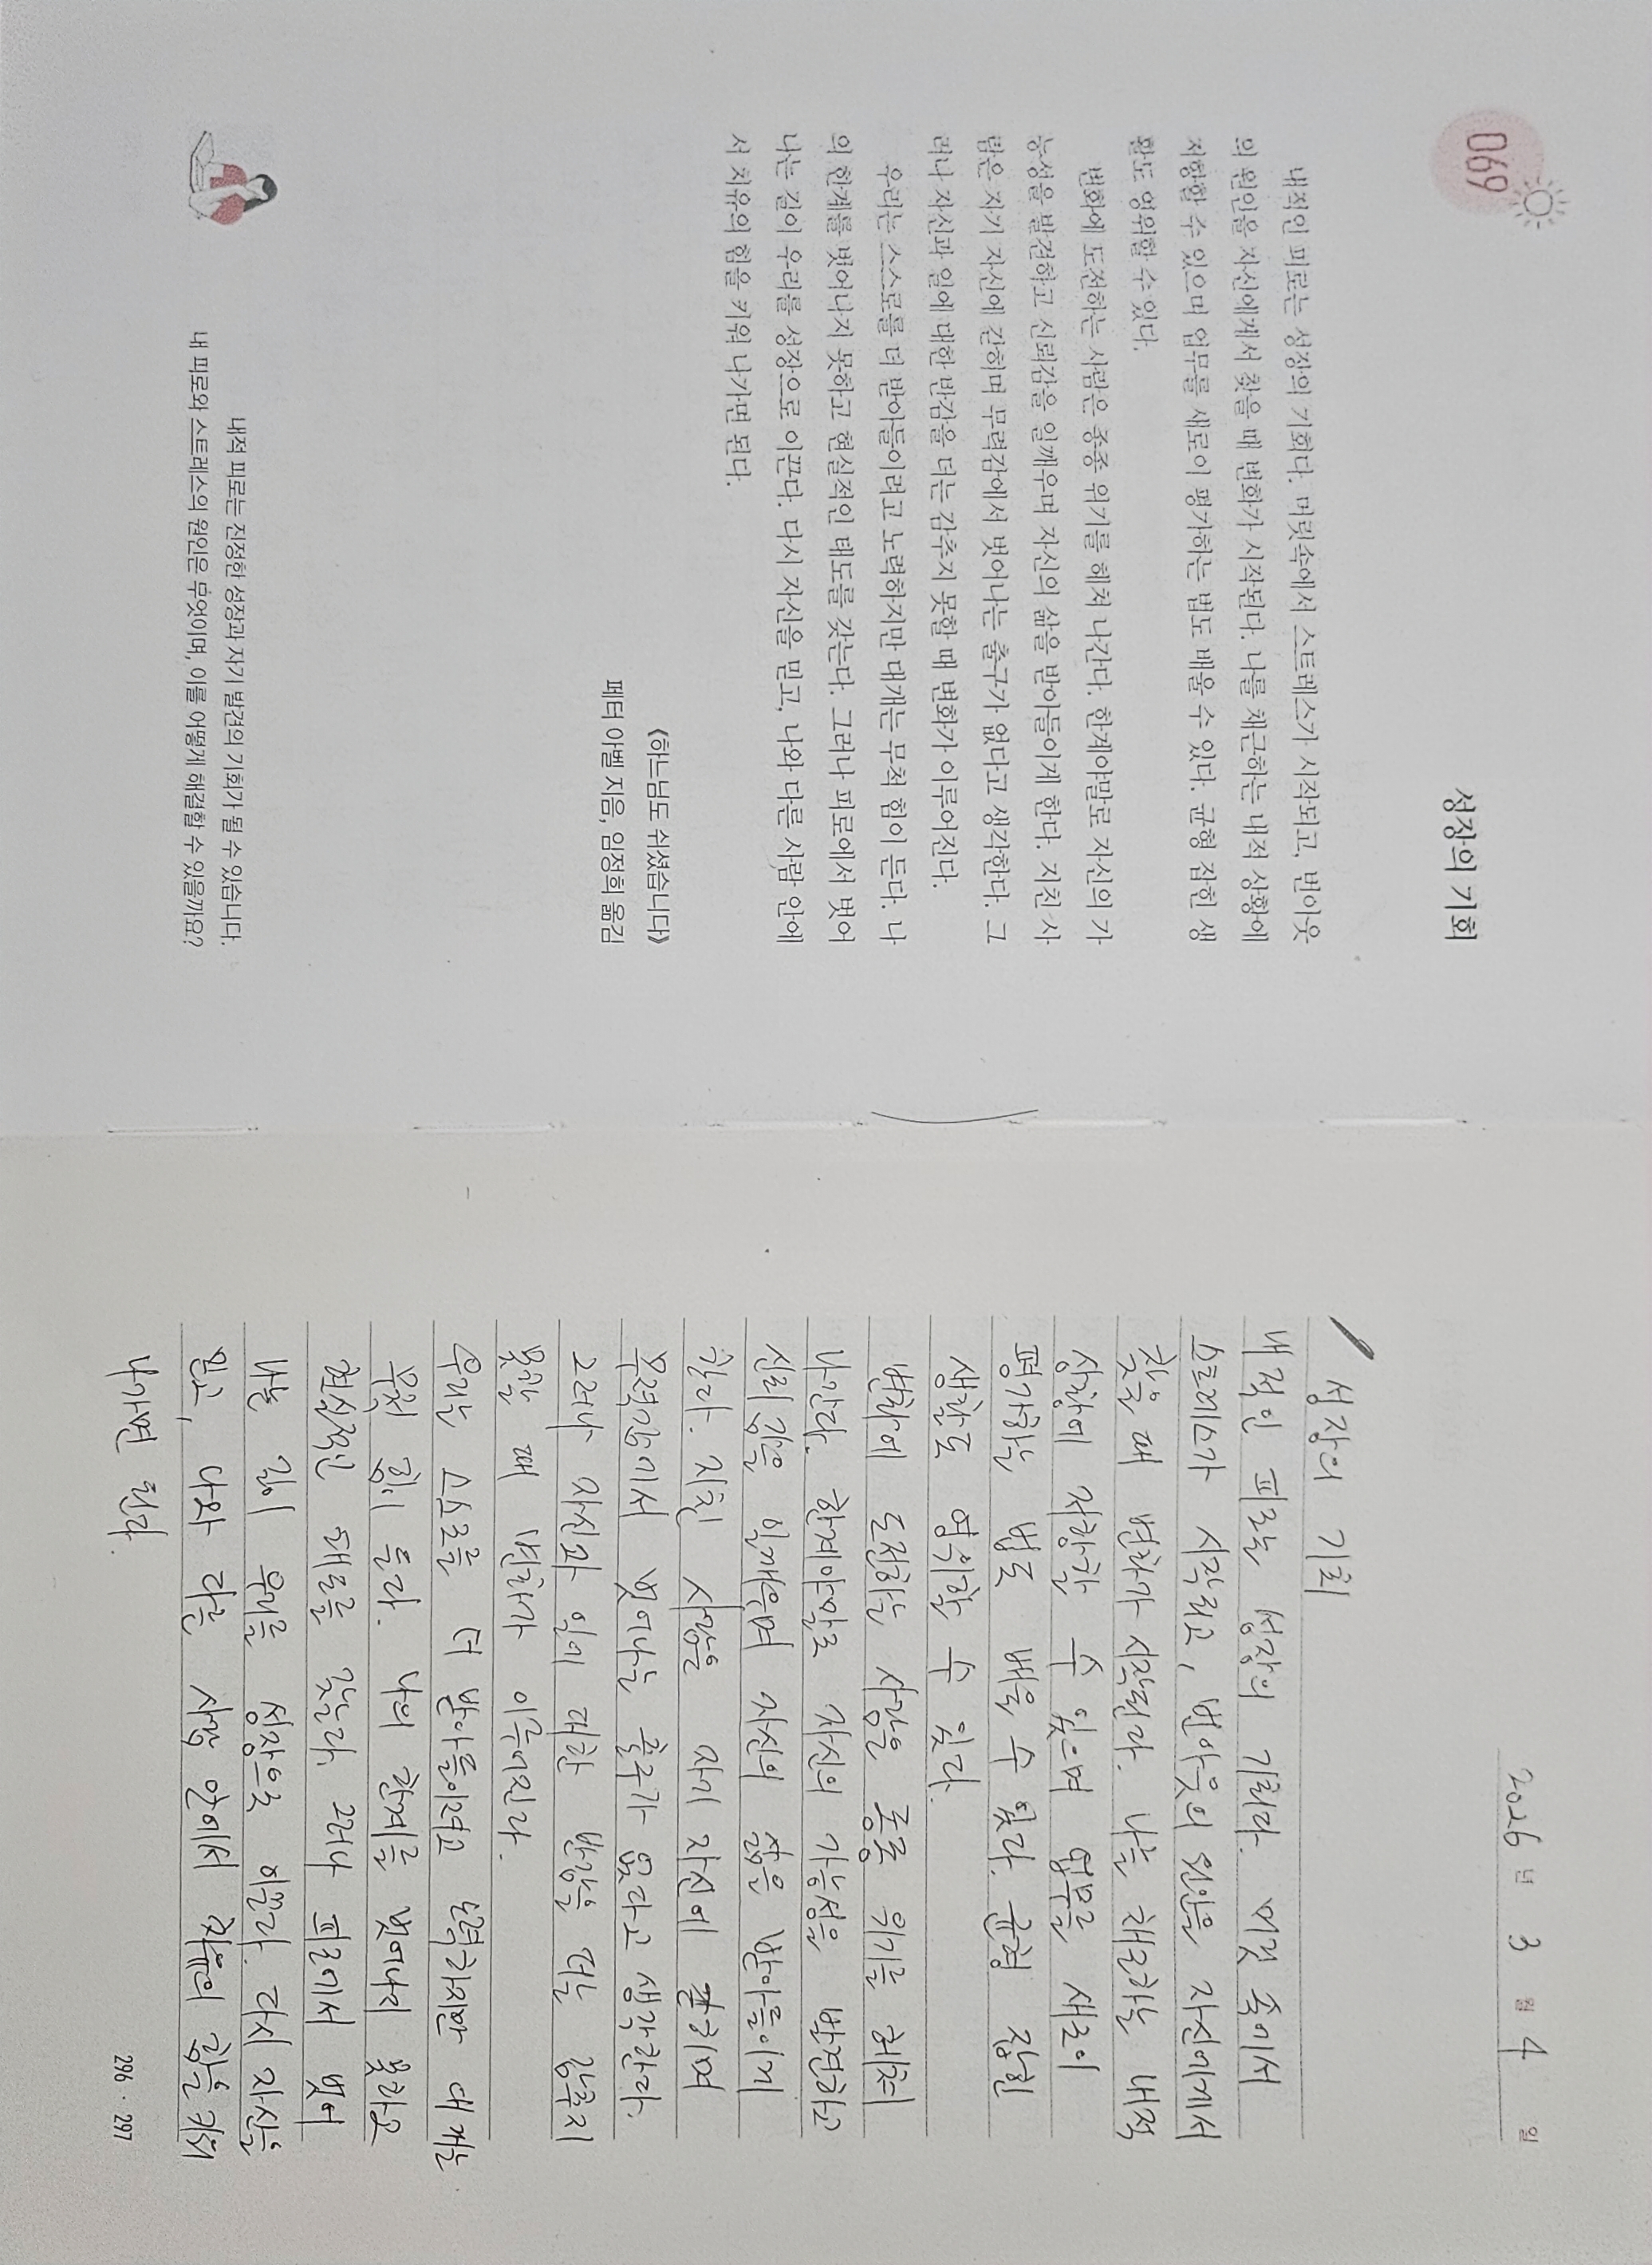 069
성장의 기회
내적인 피로는 성장의 기회다. 머릿속에서 스트레스가 시작되고, 번아웃
의 원인을 자신에게서 찾을 때 변화가 시작된다. 나를 채근하는 내적 상황에
저항할 수 있으며 업무를 새로이 평가하는 법도 배울 수 있다. 균형 잡힌 생
활도 영위할 수 있다.
변화에 도전하는 사람은 종종 위기를 헤쳐 나간다. 한계야말로 자신의 가
능성을 발견하고 신뢰감을 일깨우며 자신의 삶을 받아들이게 한다. 지친 사
람은 자기 자신에 갇히며 무력감에서 벗어나는 출구가 없다고 생각한다. 그
러나 자신과 일에 대한 반감을 더는 감추지 못할 때 변화가 이루어진다.
우리는 스스로를 더 받아들이려고 노력하지만 대개는 무척 힘이 든다. 나
의 한계를 벗어나지 못하고 현실적인 태도를 갖는다. 그러나 피로에서 벗어
나는 길이 우리를 성장으로 이끈다. 다시 자신을 믿고, 나와 다른 사람 안에
서 치유의 힘을 키워 나가면 된다.
《하느님도 쉬셨습니다》
페터 아벨 지음, 임정희 옮김
내적 피로는 진정한 성장과 자기 발견의 기회가 될 수 있습니다.
내 피로와 스트레스의 원인은 무엇이며, 이를 어떻게 해결할 수 있을까요?
2026 년 3 월 4 일
성장의 기회
내적인 피로는 성장의 기회다. 머릿 속에서
스트레스가 시작되고, 번아웃의 원인을 자신에게서
찾을 때 변화가 시작된다. 나는 채근하는 내적
상황에 저항할 수 있으며 업무를 새로이
평가하는 법도 배울 수 있다. 균형 잡힌
생활도 영위할 수 있다.
변화에 도전하는 사람은 종종 위기를 헤쳐
나간다. 한계야말로 자신의 가능성을 발견하고
신뢰감을 일깨우며 자신의 삶을 받아들이게
한다. 지친 사람은 자기 자신에 갇히며
무력감에서 벗어나는 출구가 없다고 생각한다.
그러나 자신과 일에 대한 반감을 더는 감추지
못할 때 변화가 이루어진다.
우리는 스스로를 더 받아들이려고 노력하지만 대개는
무척 힘이 든다. 나의 한계를 벗어나지 못하고
현실적인 태도를 갖는다. 그러나 피로에서 벗어
나는 길이 우리를 성장으로 이끈다. 다시 자신을
믿고, 나와 다른 사람 안에서 치유의 힘을 키워
나가면 된다.
296 · 297